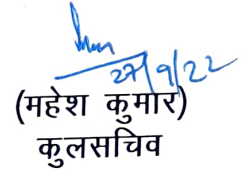 27/9/22
(महेश कुमार)
कुलसचिव